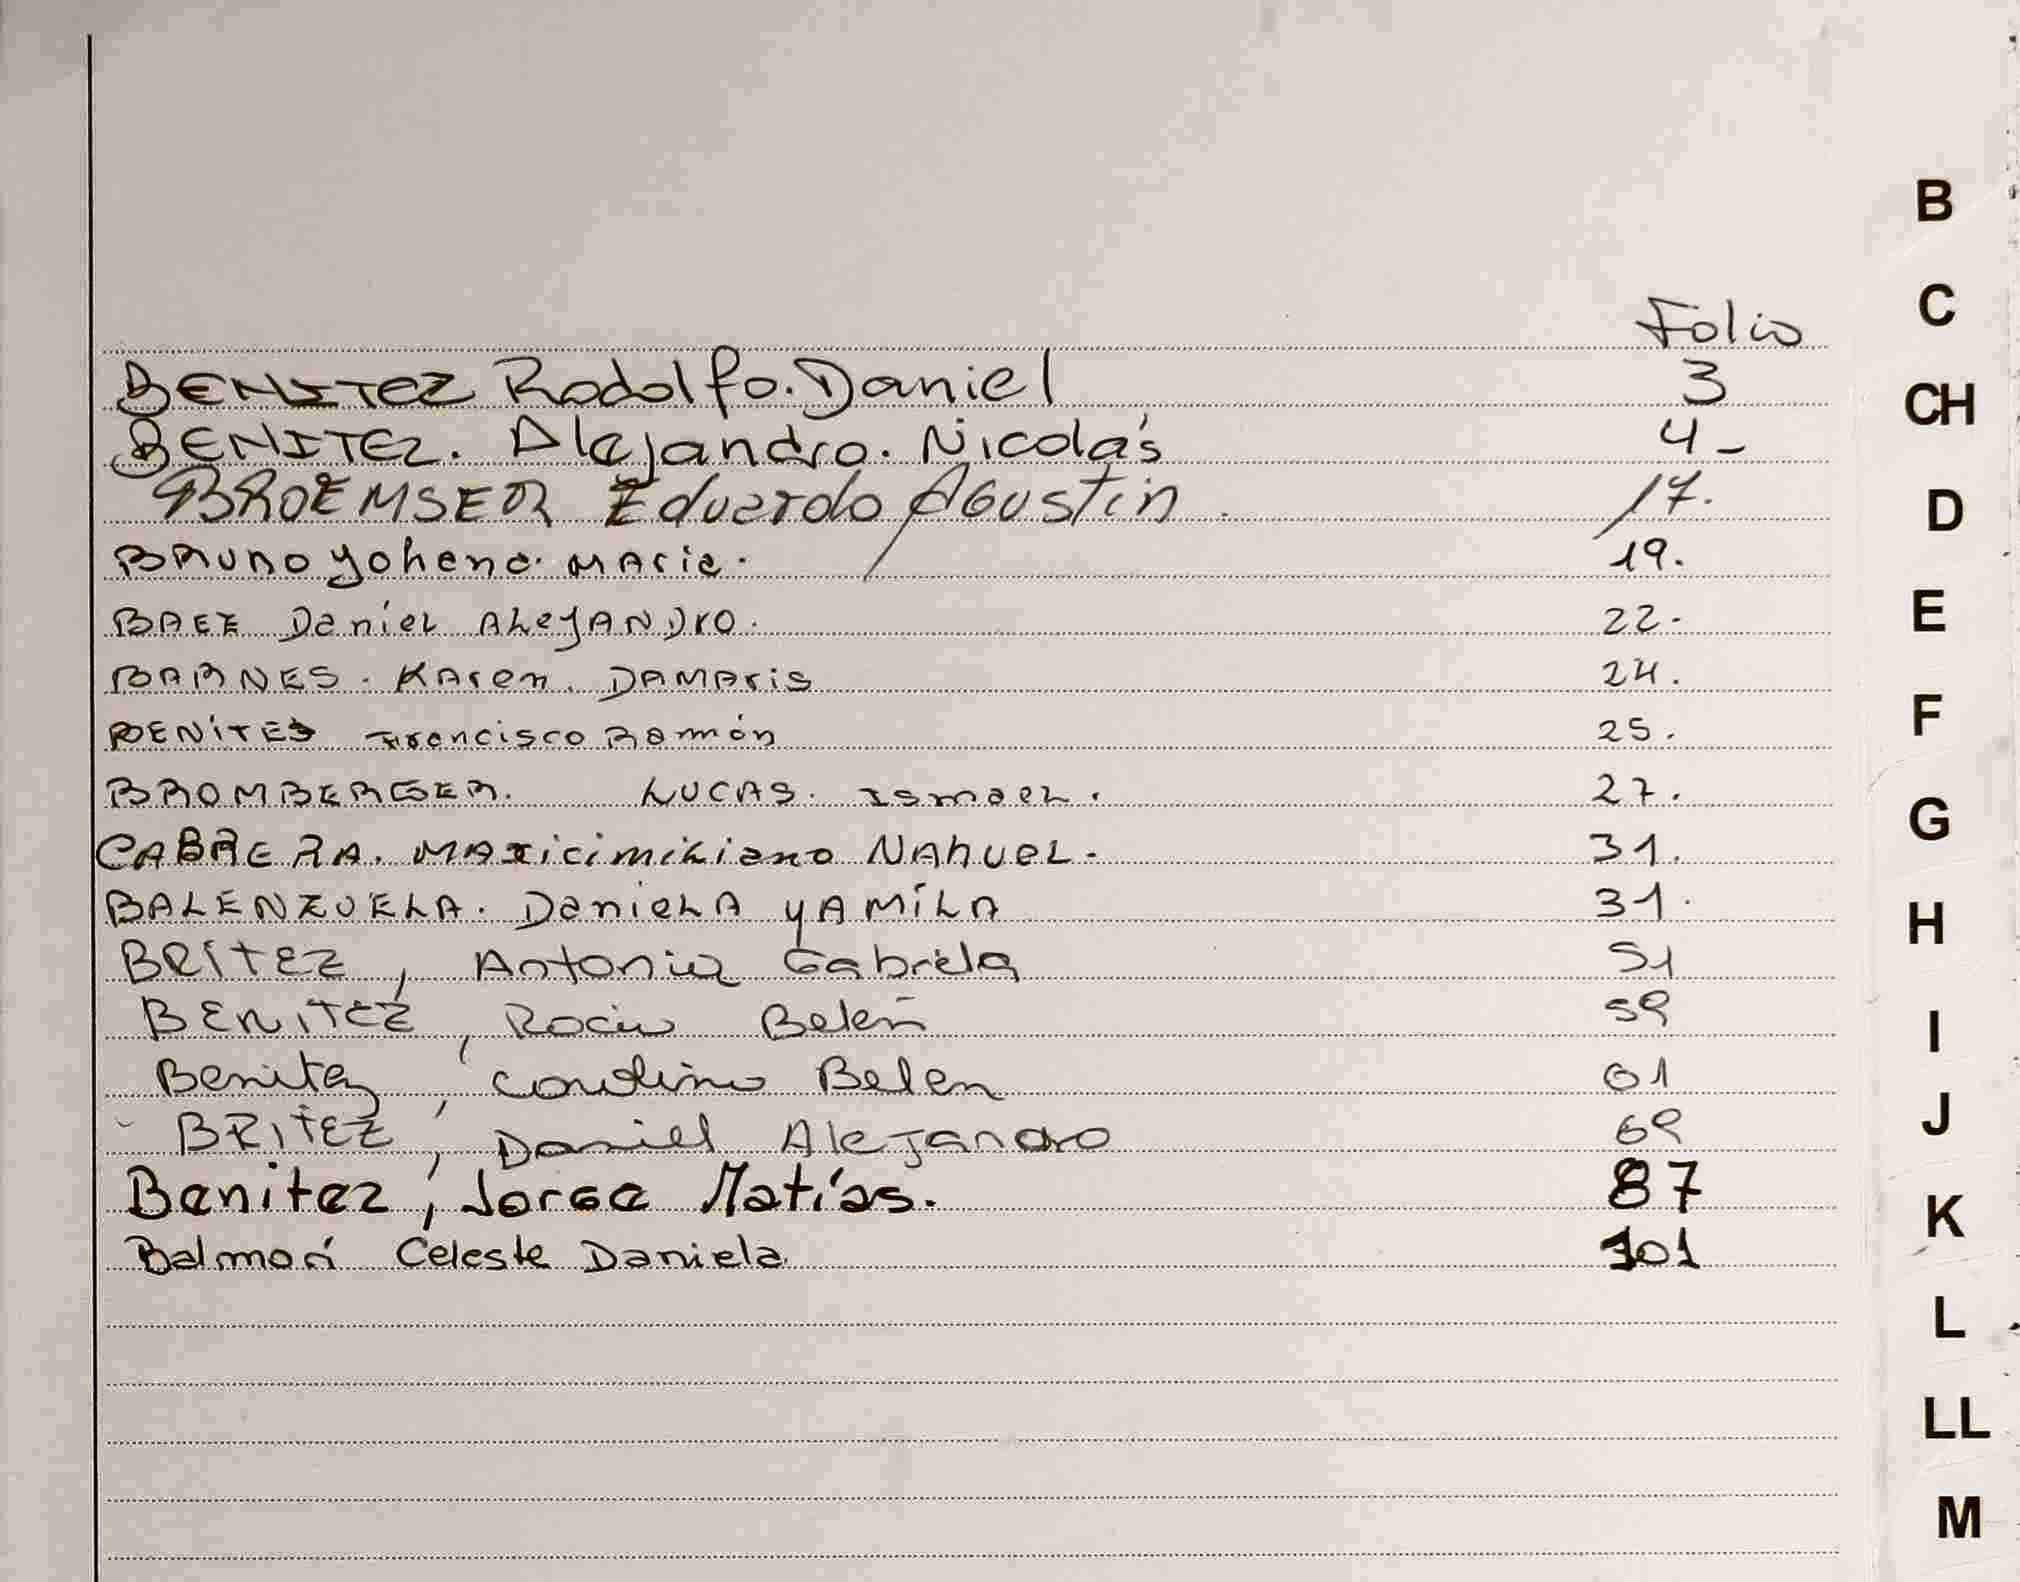 Folio
BENITEZ Rodolfo. Daniel 3
BENITEZ. Alejandro. Nicolás 4-
BROEMSER Eduardo Agustin. 17.
BRUNO Yohena. MAria. 19.
BAEZ Daniel ALeJANDrO. 22.
BARNES. KAren. DAMAris 24.
BENíTES Francisco Ramón 25.
BROMBERGER. LUCAS. Ismael. 27.
CABRERA. MAxicimiliano NAhuel. 31.
BALENZUELA. DanieLA YAMíLA 31.
BRÍTEZ, Antonia Gabriela 51
BENITEZ, Rocio Belén 59
Benitez, Belen 61
BRITEZ, Daniel Alejandro 69
Benitez, Jorge Matías. 87
Balmori Celeste Daniela. 101
B
C
CH
D
E
F
G
H
I
J
K
L
LL
M